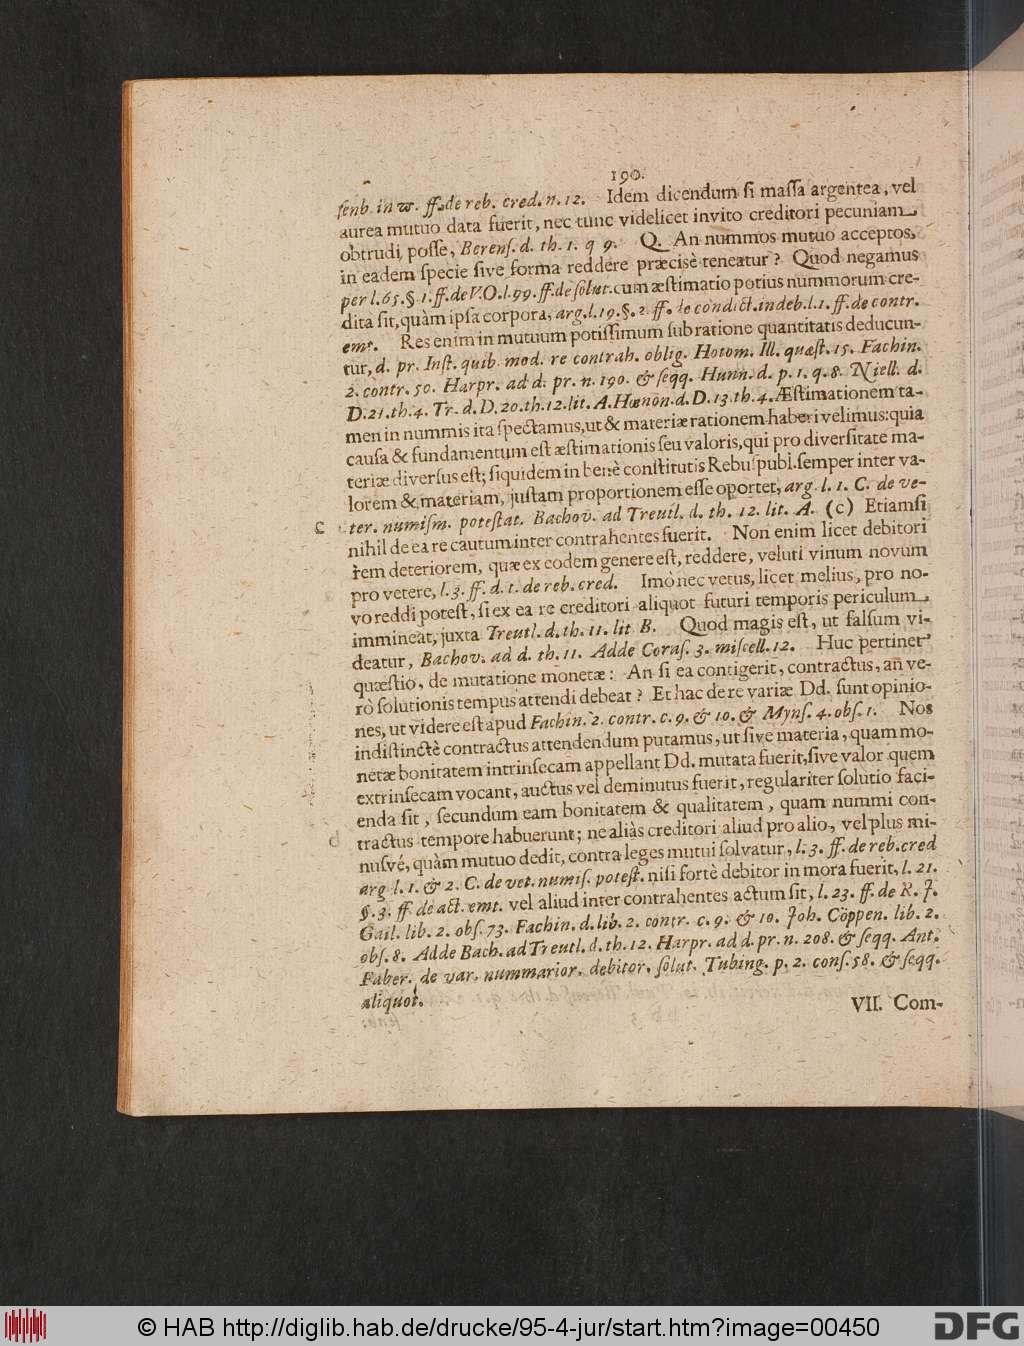 190.
ſenb. in π. ff. de reb. cred. n. 12. Idem dicendum ſi maſſa argentea, vel
aurea mutuo data fuerit, nec tunc videlicet invito creditori pecuniam
obtrudi poſſe, Berenſ. d. th. 1. q 9. Q. An nummos mutuo acceptos,
in eadem ſpecie ſive forma reddere præcisè teneatur? Quod negamus
per l. 65. § 1. ff. de V. O. l. 99. ff. de ſolut. cum æſtimatio potius nummorum cre-
dita ſit, quàm ipſa corpora, arg. l. 19. §. 2. ff. de condict. indeb. l. 1. ff. de contr.
emt. Res enim in mutuum potiſſimum ſub ratione quantitatis deducun-
tur, d. pr. Inſt. quib. mod. re contrah. oblig. Hotom. Ill. quæſt. 15. Fachin.
2. contr. 50. Harpr. ad d. pr. n. 190. & ſeqq. Hunn. d. p. 1. q. 8. Niell. d.
D. 21. th. 4. Tr. d. D. 20. th. 12. lit. A. Hœnon. d. D. 13. th. 4. Æſtimationem ta-
men in nummis ita ſpectamus, ut & materiæ rationem haberi velimus: quia
cauſa & fundamentum eſt æſtimationis ſeu valoris, qui pro diverſitate ma-
teriæ diverſus eſt; ſiquidem in benè conſtitutis Rebuſpubl. ſemper inter va-
lorem & materiam, juſtam proportionem eſſe oportet, arg. l. 1. C. de ve-
C ter. numiſm. poteſtat. Bachov. ad Treutl. d. th. 12. lit. A. (c) Etiamſi
nihil de ea re cautum inter contrahentes fuerit. Non enim licet debitori
rem deteriorem, quæ ex eodem genere eſt, reddere, veluti vinum novum
pro vetere, l. 3. ff. d. t. de reb. cred. Imò nec vetus, licet melius, pro no-
vo reddi poteſt, ſi ex ea re creditori aliquot futuri temporis periculum
immineat, juxta Treutl. d. th. 11. lit B. Quod magis eſt, ut falſum vi-
deatur, Bachov. ad d. th. 11. Adde Coraſ. 3. miſcell. 12. Huc pertinet
quæſtio, de mutatione monetæ: An ſi ea contigerit, contractus, an ve-
rò ſolutionis tempus attendi debeat? Et hac de re variæ Dd. ſunt opinio-
nes, ut videre eſt apud Fachin. 2. contr. c. 9. & 10. & Mynſ. 4. obſ. 1. Nos
indiſtinctè contractus attendendum putamus, ut ſive materia, quam mo-
netæ bonitatem intrinſecam appellant Dd. mutata fuerit, ſive valor quem
extrinſecam vocant, auctus vel deminutus fuerit, regulariter ſolutio faci-
enda ſit, ſecundum eam bonitatem & qualitatem, quam nummi con-
tractus tempore habuerunt; ne aliàs creditori aliud pro alio, vel plus mi-
nuſvé, quàm mutuo dedit, contra leges mutui ſolvatur, l. 3. ff. de reb. cred
arg l. 1. & 2. C. de vet. numiſ. poteſt. niſi fortè debitor in mora fuerit, l. 21.
§. 3. ff. de act. emt. vel aliud inter contrahentes actum ſit, l. 23. ff. de R. J.
Gail. lib. 2. obſ. 73. Fachin. d. lib. 2. contr. c. 9. & 10. Joh. Cöppen. lib. 2.
obſ. 8. Adde Bach. ad Treutl. d. th. 12. Harpr. ad d. pr. n. 208. & ſeqq. Ant.
Faber. de var. nummarior. debitor. ſolut. Tubing. p. 2. conſ. 58. & ſeqq.
aliquot.
VII. Com-
© HAB http://diglib.hab.de/drucke/95-4-jur/start.htm?image=00450
DFG